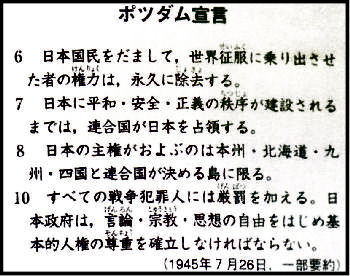 ポツダム宣言
6 日本国民をだまして，世界征服に乗り出させ
た者の権力は，永久に除去する。
7 日本に平和・安全・正義の秩序が建設される
までは，連合国が日本を占領する。
8 日本の主権がおよぶのは本州・北海道・九
州・四国と連合国が決める島に限る。
10 すべての戦争犯罪人には厳罰を加える。日
本政府は，言論・宗教・思想の自由をはじめ基
本的人権の尊重を確立しなければならない。
（1945年7月26日，一部要約）